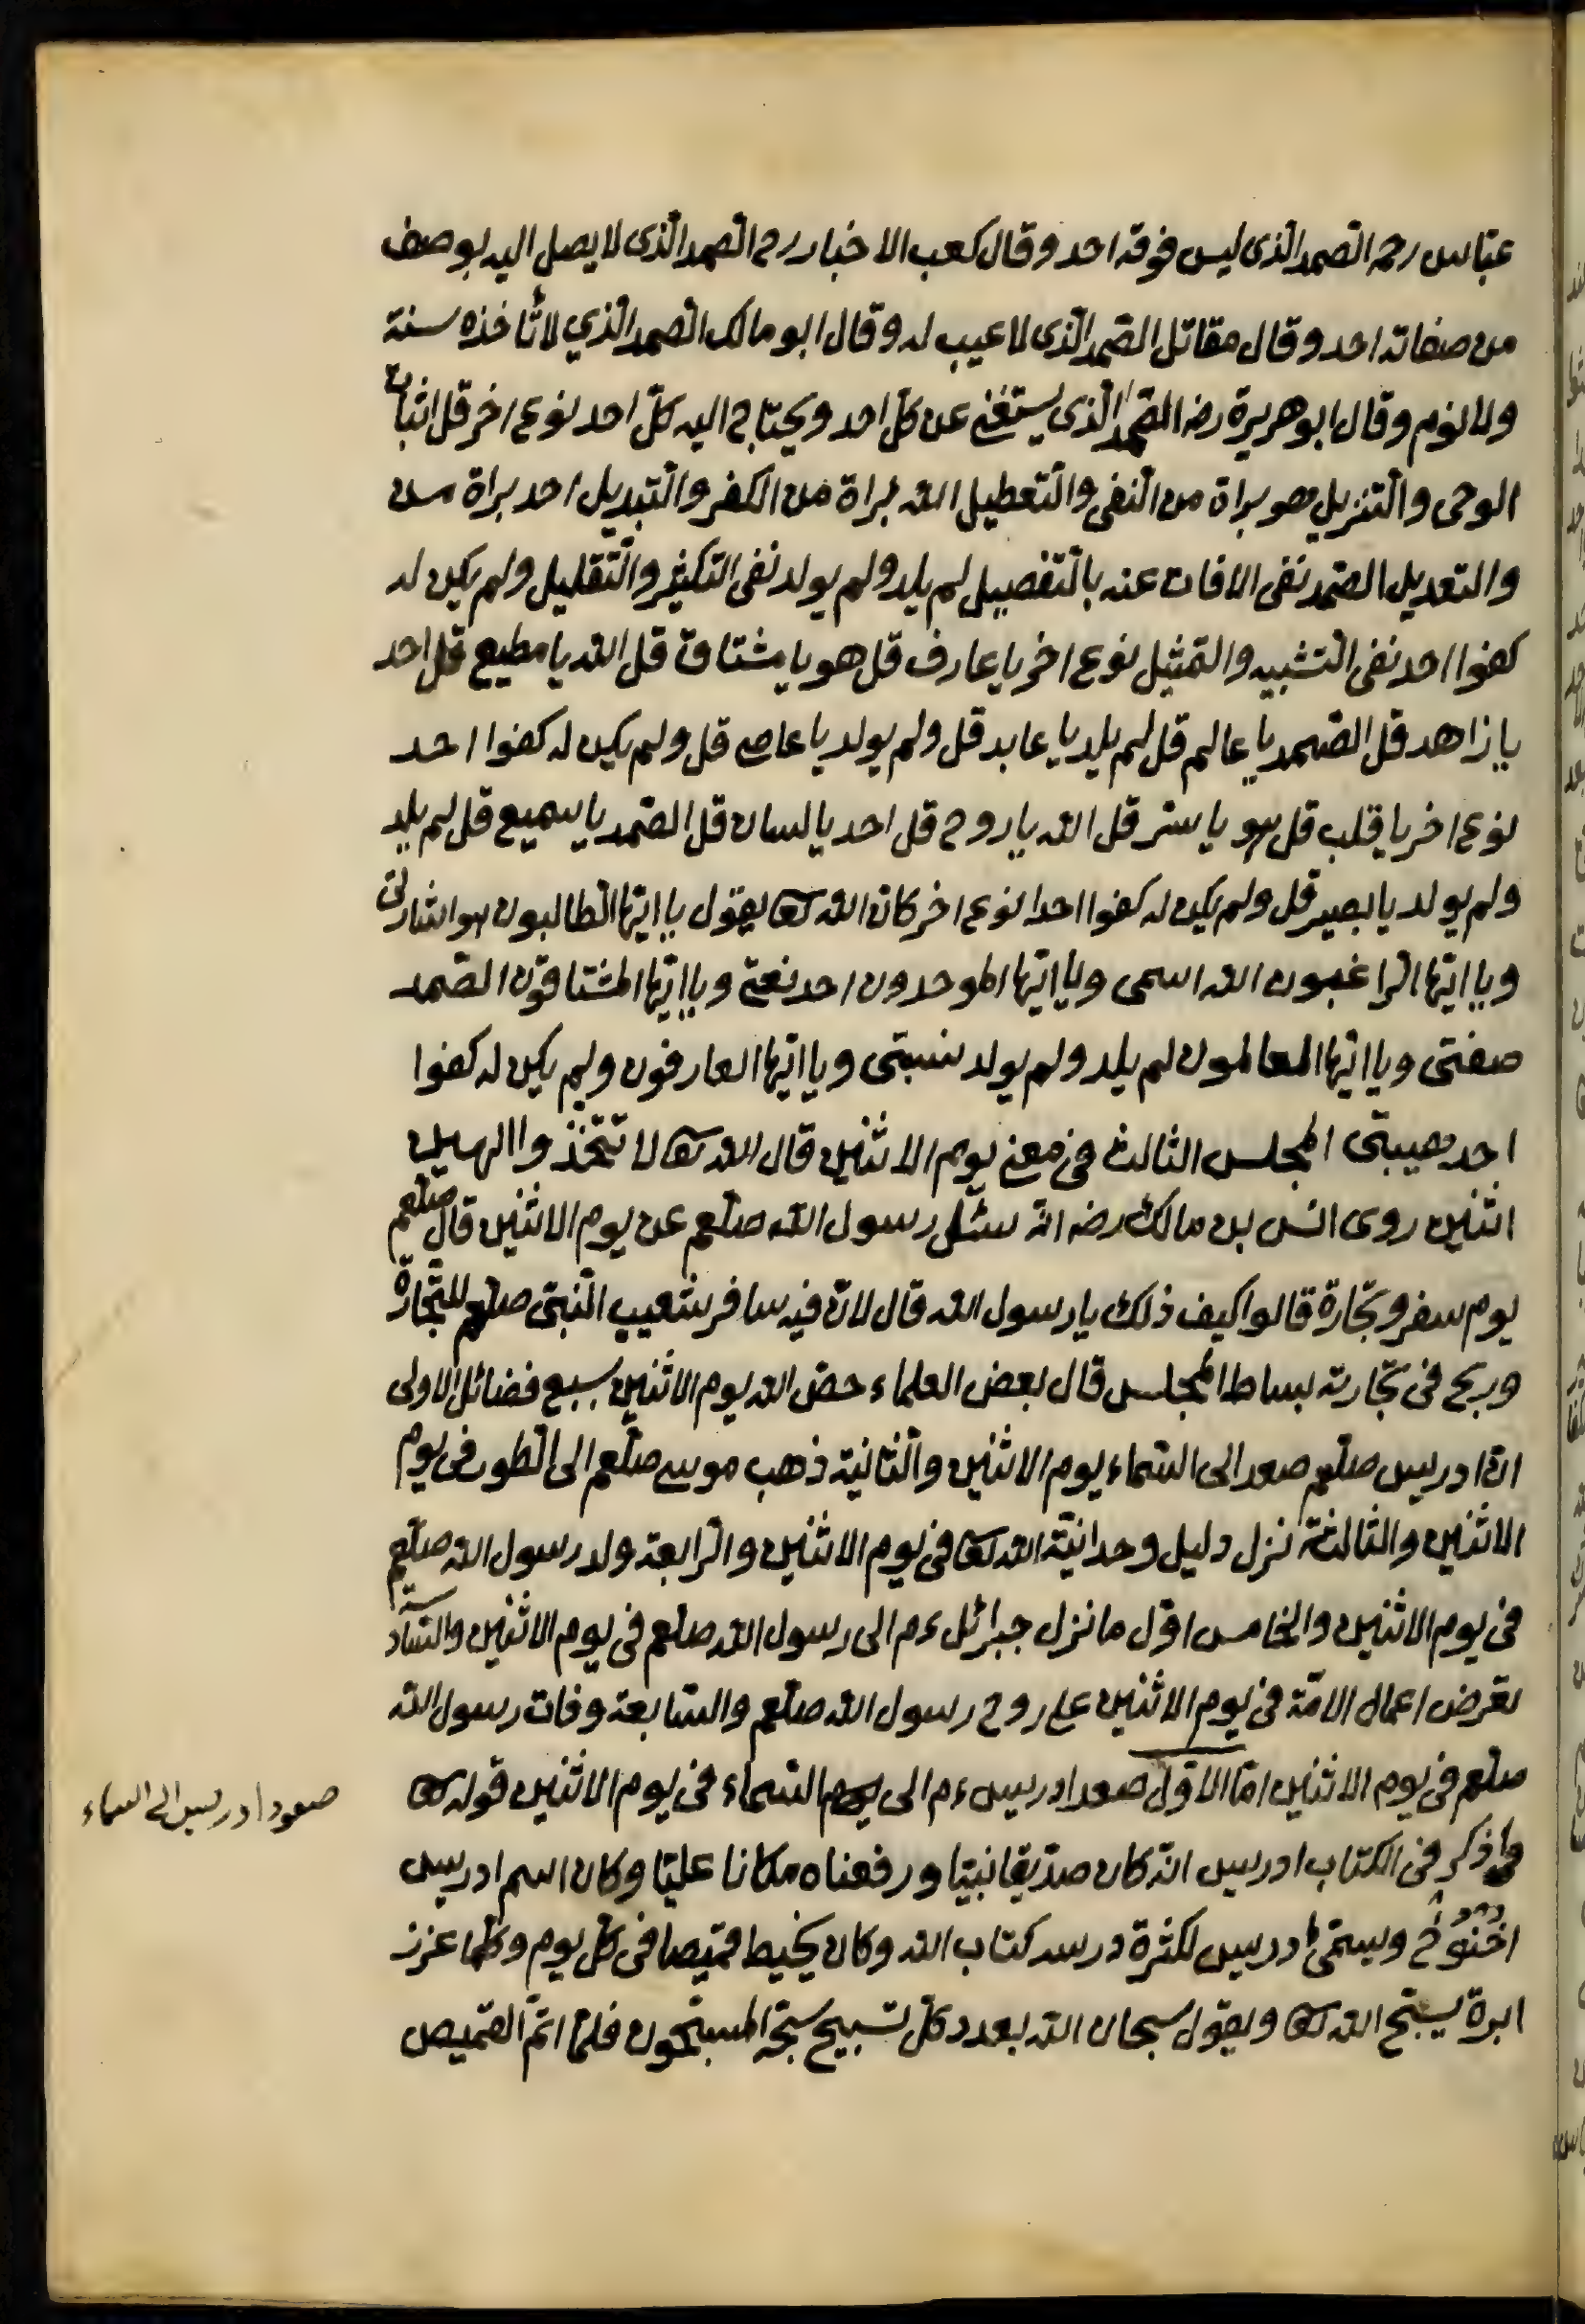 عبّاس رحمه الصّمد الّذى ليس فوقه احد وقال كعب الاخبار رح الصّمد الّذى لا يصل اليه بوصف
من صفاته احد وقال مقاتل الصّمد الّذى لا عيب له وقال ابو مالك الصّمد الّذي لا تأخذه سنة
ولا نوم وقال ابو هريرة رضه الصّمد الّذى يستغنى عن كلّ احد ويحتاج اليه كلّ احد نوع اخر قل اثبات
الوحى والتّنزيل هو براة من النّفى والتّعطيل الله براة من الكفر والتّبديل احد براة من
والتعديل الصّمد نفى الافات عنه بالتّفصيل لم يلد ولم يولد نفى التكثير والتّقليل ولم يكن له
كفوا احد نفى التّشبيه والتمثيل نوع اخر يا عارف قل هو يا مشتاق قل الله يا مطيع قل احد
يا زاهد قل الصّمد يا عالم قل لم يلد يا عابد قل ولم يولد يا عاصى قل ولم يكن له كفوا احد
نوع اخر يا قلب قل هو يا سرّ قل الله يا روح قل احد يا لسان قل الصّمد يا سميع قل لم يلد
ولم يولد يا بصير قل ولم يكن له كفوا احدا نوع اخر كان الله تعا يقول يا ايّها الطّالبون هو اشارتى
ويا ايّها الرّاغبون الله اسمى ويا ايّها الموحدون احد نعتى ويا ايّها المشتاقون الصّمد
صفتى ويا ايّها العالمون لم يلد ولم يولد نسبتى ويا ايّها العارفون ولم يكن له كفوا
احد هيبتى المجلس الثالث فى معنى يوم الاثنين قال الله تعا لا تتّخذوا الهين
اثنين روى انس بن مالك رضه انّه سئل رسول الله صلّعم عن يوم الاثنين قال صلّعم
يوم سفر وتجّارة قالوا كيف ذلك يا رسول الله قال لانّ فيه سافر شعيب النّبىّ صلّعم للتّجارة
وربح فى تجّارته بساط المجلس قال بعض العلماء خصّ الله يوم الاثنين بسبع فضائل الاولى
انّ ادريس صلّعم صعد الى السّماء يوم الاثنين والثّانية ذهب موسى صلّعم الى الطّور فى يوم
الاثنين والثالثة نزل دليل وحدانيّة الله تعا فى يوم الاثنين والرّابعة ولد رسول الله صلّعم
فى يوم الاثنين والخامس اوّل ما نزل جبرائل ءم الى رسول الله صلعم فى يوم الاثنين والسّادسة
تعرض اعمال الامّة فى يوم الاثنين على روح رسول الله صلّعم والسّابعة وفات رسول الله
صلعم فى يوم الاثنين امّا الاوّل صعد ادريس ءم الى السّماء فى يوم الاثنين قوله تعا
واذكر فى الكتاب ادريس انّه كان صدّيقا نبيّا ورفعناه مكانا عليّا وكان اسم ادريس
اخنوخ ويسمّى ادريس لكثرة درسه كتاب الله وكان يخيط قميصا فى كلّ يوم وكلّما غرز
ابرة يسبّح الله تعا ويقول سبحان الله بعدد كلّ تسبيح سبّحه المسبّحون فلمّا اتمّ القميص
صعود ادريس الى السماء